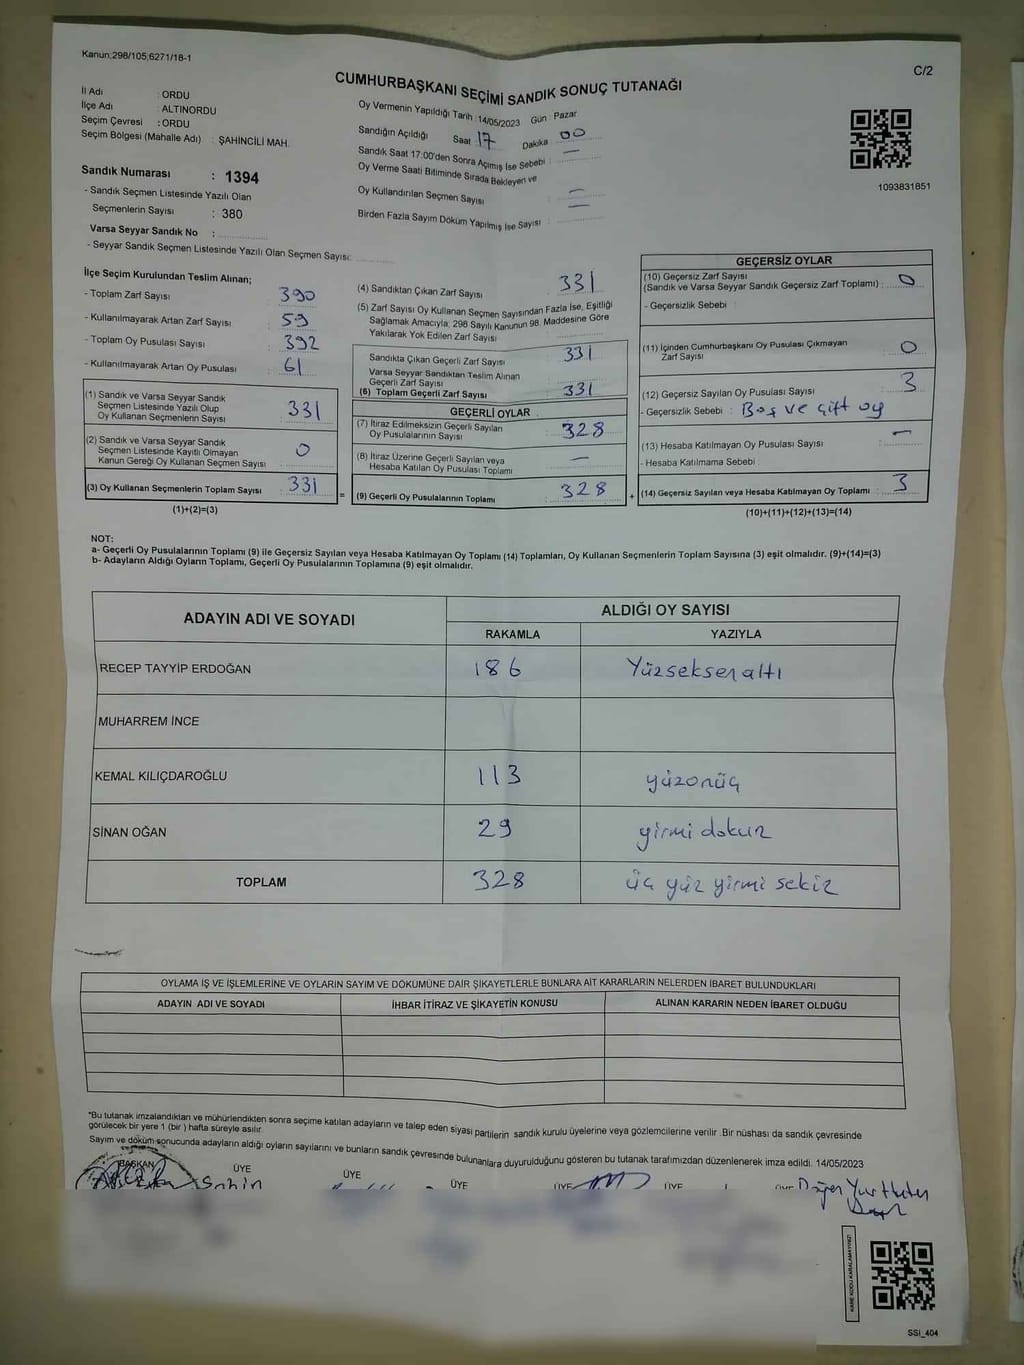 Kanun:298/105;6271/18-1
C/2
CUMHURBAŞKANI SEÇİMİ SANDIK SONUÇ TUTANAĞI
İl Adı : ORDU
İlçe Adı : ALTINORDU
Seçim Çevresi : ORDU
Seçim Bölgesi (Mahalle Adı) : ŞAHİNCİLİ MAH.
Sandık Numarası : 1394
- Sandık Seçmen Listesinde Yazılı Olan
Seçmenlerin Sayısı : 380
Varsa Seyyar Sandık No :
- Seyyar Sandık Seçmen Listesinde Yazılı Olan Seçmen Sayısı:
Oy Vermenin Yapıldığı Tarih : 14/05/2023 Gün : Pazar
Sandığın Açıldığı Saat 17 Dakika 00
Sandık Saat 17:00'den Sonra Açımış İse Sebebi : —
Oy Verme Saati Bitiminde Sırada Bekleyen ve
Oy Kullandırılan Seçmen Sayısı : —
Birden Fazla Sayım Döküm Yapılmış İse Sayısı : —
1093831851
İlçe Seçim Kurulundan Teslim Alınan;
- Toplam Zarf Sayısı : 390
- Kullanılmayarak Artan Zarf Sayısı : 59
- Toplam Oy Pusulası Sayısı : 392
- Kullanılmayarak Artan Oy Pusulası : 61
(1) Sandık ve Varsa Seyyar Sandık
Seçmen Listesinde Yazılı Olup
Oy Kullanan Seçmenlerin Sayısı : 331
(2) Sandık ve Varsa Seyyar Sandık
Seçmen Listesinde Kayıtlı Olmayan
Kanun Gereği Oy Kullanan Seçmen Sayısı : 0
(3) Oy Kullanan Seçmenlerin Toplam Sayısı : 331
(1)+(2)=(3)
=
(4) Sandıktan Çıkan Zarf Sayısı : 331
(5) Zarf Sayısı Oy Kullanan Seçmen Sayısından Fazla İse, Eşitliği
Sağlamak Amacıyla; 298 Sayılı Kanunun 98. Maddesine Göre
Yakılarak Yok Edilen Zarf Sayısı :
Sandıkta Çıkan Geçerli Zarf Sayısı : 331
Varsa Seyyar Sandıktan Teslim Alınan
Geçerli Zarf Sayısı :
(6) Toplam Geçerli Zarf Sayısı : 331
GEÇERLİ OYLAR
(7) İtiraz Edilmeksizin Geçerli Sayılan
Oy Pusulalarının Sayısı : 328
(8) İtiraz Üzerine Geçerli Sayılan veya
Hesaba Katılan Oy Pusulası Toplamı : —
(9) Geçerli Oy Pusulalarının Toplamı : 328
+
GEÇERSİZ OYLAR
(10) Geçersiz Zarf Sayısı
(Sandık ve Varsa Seyyar Sandık Geçersiz Zarf Toplamı) : 0
- Geçersizlik Sebebi :
(11) İçinden Cumhurbaşkanı Oy Pusulası Çıkmayan
Zarf Sayısı : 0
(12) Geçersiz Sayılan Oy Pusulası Sayısı : 3
- Geçersizlik Sebebi : Boş ve çift oy
(13) Hesaba Katılmayan Oy Pusulası Sayısı : —
- Hesaba Katılmama Sebebi :
(14) Geçersiz Sayılan veya Hesaba Katılmayan Oy Toplamı : 3
(10)+(11)+(12)+(13)=(14)
NOT:
a- Geçerli Oy Pusulalarının Toplamı (9) ile Geçersiz Sayılan veya Hesaba Katılmayan Oy Toplamı (14) Toplamları, Oy Kullanan Seçmenlerin Toplam Sayısına (3) eşit olmalıdır. (9)+(14)=(3)
b- Adayların Aldığı Oyların Toplamı, Geçerli Oy Pusulalarının Toplamına (9) eşit olmalıdır.
ADAYIN ADI VE SOYADI
ALDIĞI OY SAYISI
RAKAMLA YAZIYLA
RECEP TAYYİP ERDOĞAN 186 Yüzseksenaltı
MUHARREM İNCE
KEMAL KILIÇDAROĞLU 113 yüzonüç
SİNAN OĞAN 29 yirmi dokuz
TOPLAM 328 üç yüz yirmi sekiz
OYLAMA İŞ VE İŞLEMLERİNE VE OYLARIN SAYIM VE DÖKÜMÜNE DAİR ŞİKAYETLERLE BUNLARA AİT KARARLARIN NELERDEN İBARET BULUNDUKLARI
ADAYIN ADI VE SOYADI İHBAR İTİRAZ VE ŞİKAYETİN KONUSU ALINAN KARARIN NEDEN İBARET OLDUĞU
"Bu tutanak imzalandıktan ve mühürlendikten sonra seçime katılan adayların ve talep eden siyasi partilerin sandık kurulu üyelerine veya gözlemcilerine verilir .Bir nüshası da sandık çevresinde
görülecek bir yere 1 (bir ) hafta süreyle asılır.
Sayım ve döküm sonucunda adayların aldığı oyların sayılarını ve bunların sandık çevresinde bulunanlara duyurulduğunu gösteren bu tutanak tarafımızdan düzenlenerek imza edildi. 14/05/2023
BAŞKAN ÜYE ÜYE ÜYE ÜYE ÜYE
Şahin
KARE KODU KARALAMAYINIZ!
SSİ_404